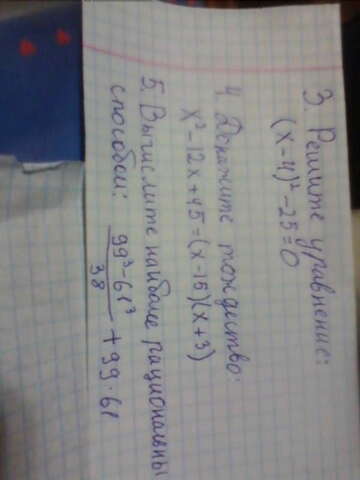 3. Решите уравнение:
(x-4)²-25=0
4. Докажите тождество:
x²-12x+45=(x-15)(x+3)
5. Вычислите наиболе рациональны
способом: (99³-61³)/38 + 99·61